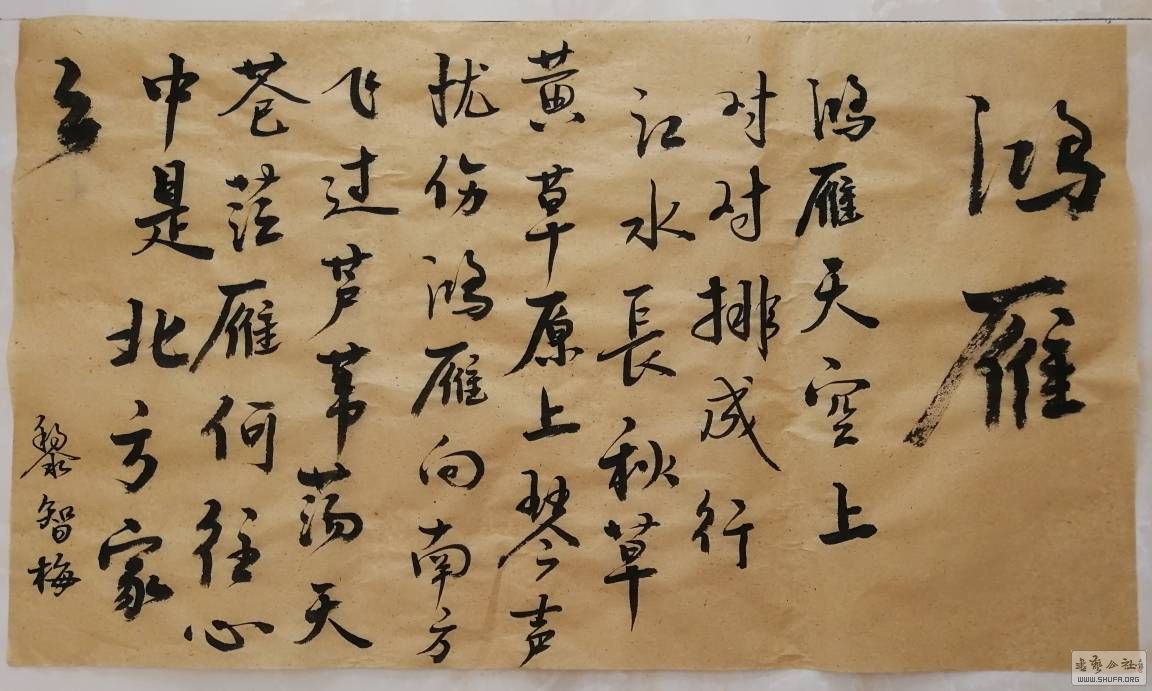 鸿雁
鸿雁天空上
对对排成行
江水長秋草
黄草原上琴声
扰伤鸿雁向南方
飞过芦苇荡天
苍茫雁何往心
中是北方家
乡
黎智梅
书艺公社
WWW.SHUFA.ORG